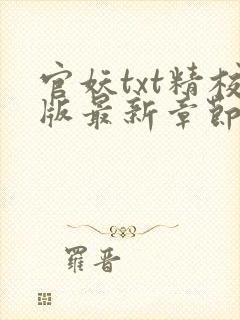 官妖txt精校
版最新章節
羅晋